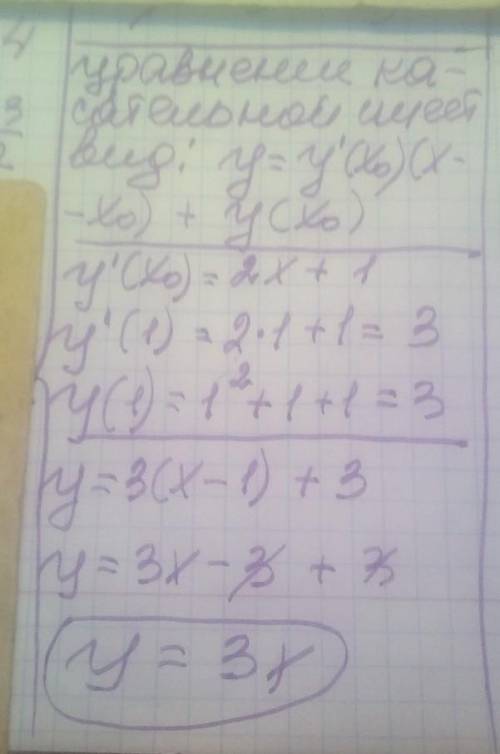 4
уравнении ка-
3
сательной имеет
2
вид: y = y'(x₀)(x-
-x₀) + y(x₀)
y'(x₀) = 2x + 1
y'(1) = 2·1 + 1 = 3
y(1) = 1² + 1 + 1 = 3
y = 3(x - 1) + 3
y = 3x - 3 + 3
y = 3x